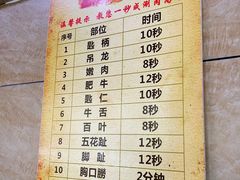 温馨提示 教您一秒成涮肉
序号 部位 时间
1 匙柄 10秒
2 吊龙 8秒
3 嫩肉 10秒
4 肥牛 12秒
5 匙仁 10秒
6 牛舌 8秒
7 百叶 8秒
8 五花趾 12秒
9 脚趾 12秒
10 胸口朥 2分钟